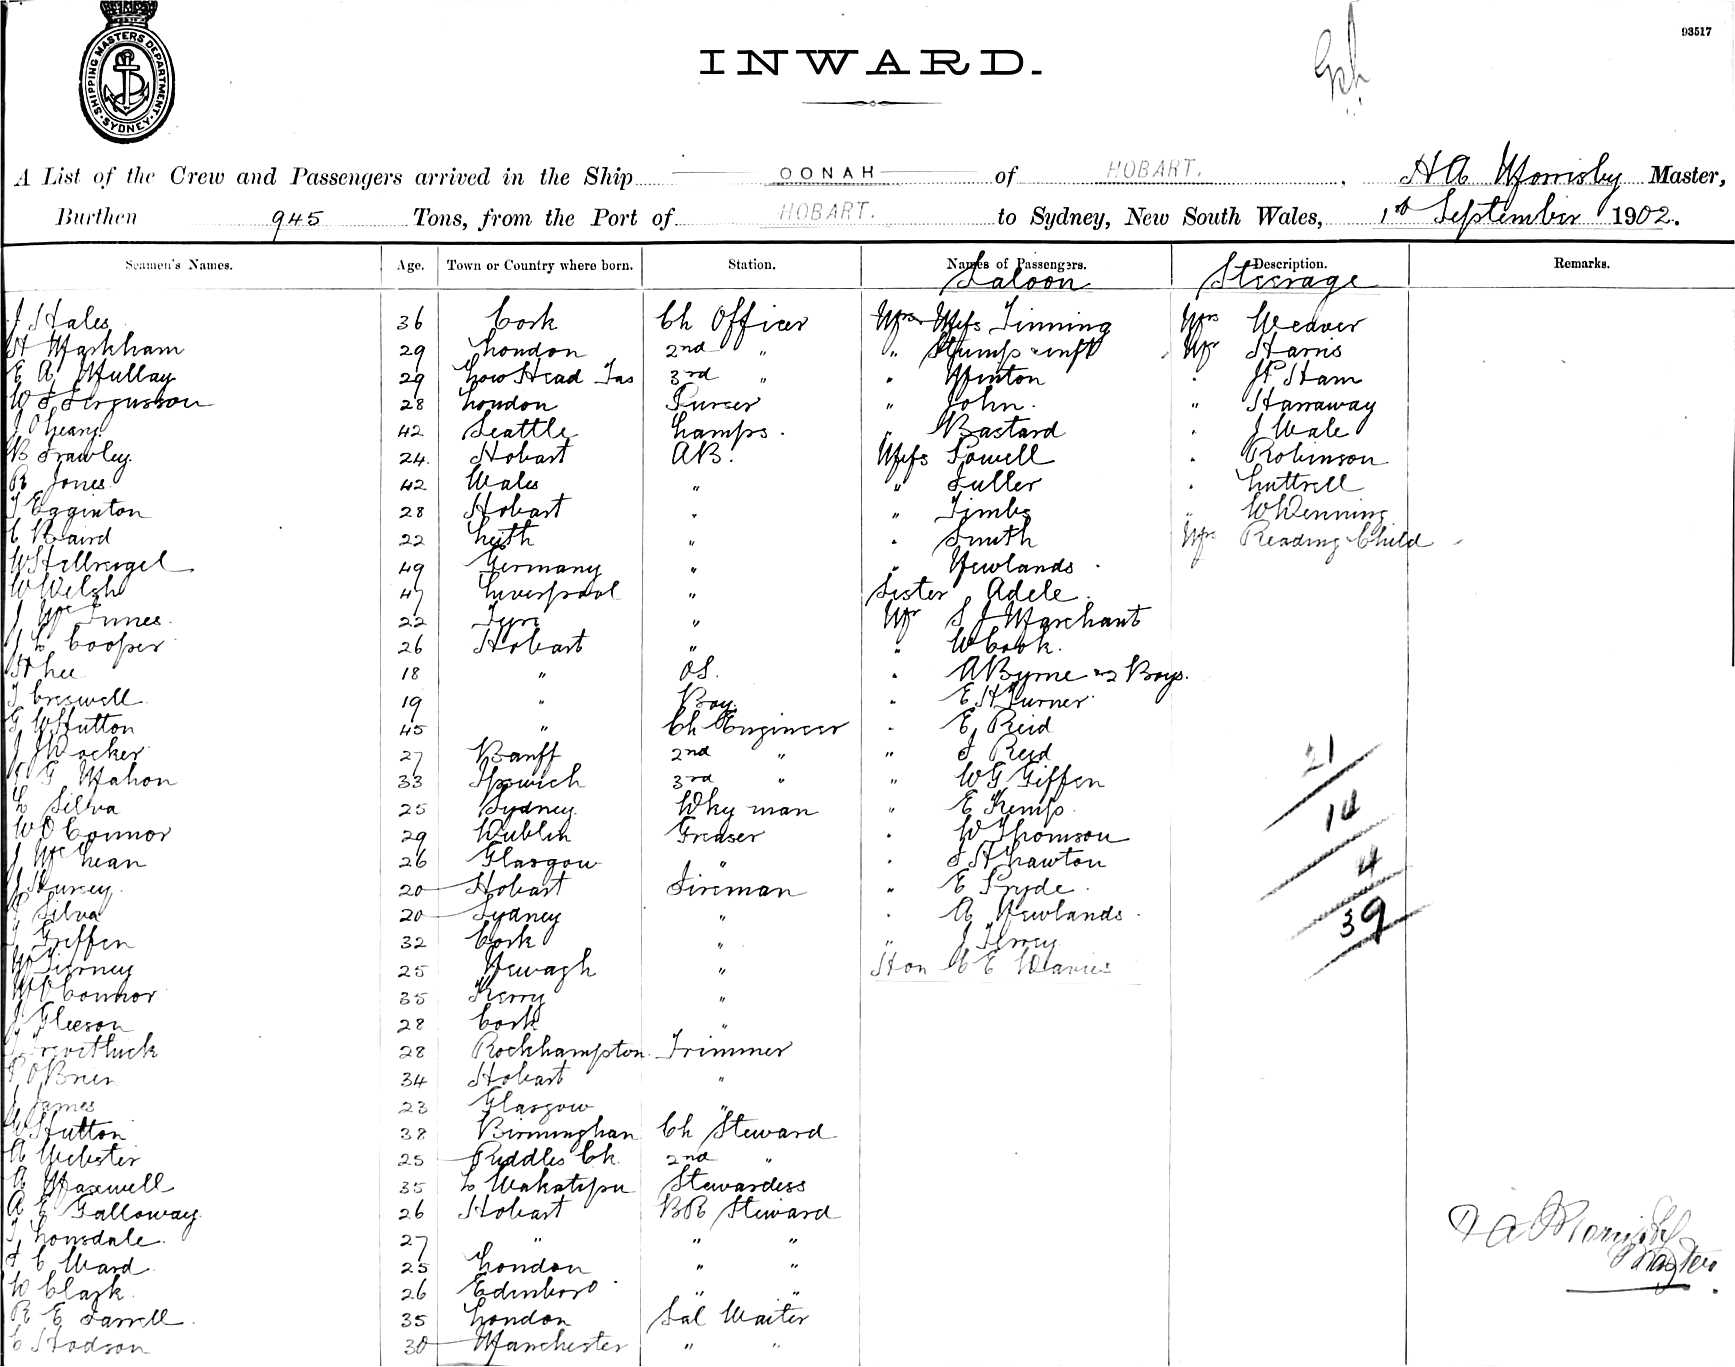 SHIPPING MASTERS DEPARTMENT SYDNEY
93517
INWARD.
A List of the Crew and Passengers arrived in the Ship OONAH of HOBART. H A Master,
Burthen 945 Tons, from the Port of HOBART. to Sydney, New South Wales, 1st September 1902.
Seamen's Names. Age. Town or Country where born. Station. Names of Passengers. Description. Remarks.
Saloon Steerage
J Hales 36 Cork Ch Officer Mrs Tinning Mrs Weaver
H Markham 29 London 2nd " " Stump & inft Mr Harris
E A Mullay 29 Low Head Tas 3rd " " Minton " Ham
W F Fergusson 28 London Purser " John. " Harraway
42 Seattle Lamps. " Bastard " J Wale
B Frawley. 24. Hobart AB. Miss Powell " Robinson
R Jones 42 Wales " " Fuller " Luttrell
T Egginton 28 Hobart " " Timbs " W Denning
C Baird 22 Leith " " Smith Mrs Reading & Child
W Hellriegel 49 Germany " " Newlands
W Welsh 47 Liverpool " Sister Adele.
J McInnes 22 Tyre " Mr S J Marchant
J L Cooper 26 Hobart " " W Cook.
H Lee 18 " OS. " A Byrne & 2 Boys.
T Creswell 19 " Boy. " E H Turner
G W Hutton 45 " Ch Engineer " E Reid
J Docker 27 Banff 2nd " " J Reid
G Mahon 33 Ipswich 3rd " " W G Giffen
L Silva 25 Sydney Wky man " E Kemp
W O'Connor 29 Dublin Greaser " W Thomson
J McLean 26 Glasgow " " F H Lawton
J Hursey 20 Hobart Fireman " E Pryde
P Silva 20 Sydney " " A Newlands
J Griffen 32 Cork " " J
M Tierney 25 Newagh " Hon C E Davies
M O'Connor 35 Kerry "
J Gleeson 28 Cork "
28 Rockhampton. Trimmer
P O'Brien 34 Hobart "
J James 23 Glasgow "
Hutton 38 Birmingham Ch Steward
A Webster 25 Riddles Ck 2nd "
A Maxwell 35 L Wakatipu Stewardess
A E Galloway 26 Hobart BR Steward
T Lonsdale 27 " " "
F C Ward 25 London " "
W Clark 26 Edinboro " "
R E Farrell 35 London Sal Waiter
C Hodson 30 Manchester " "
21
14
4
39
Master